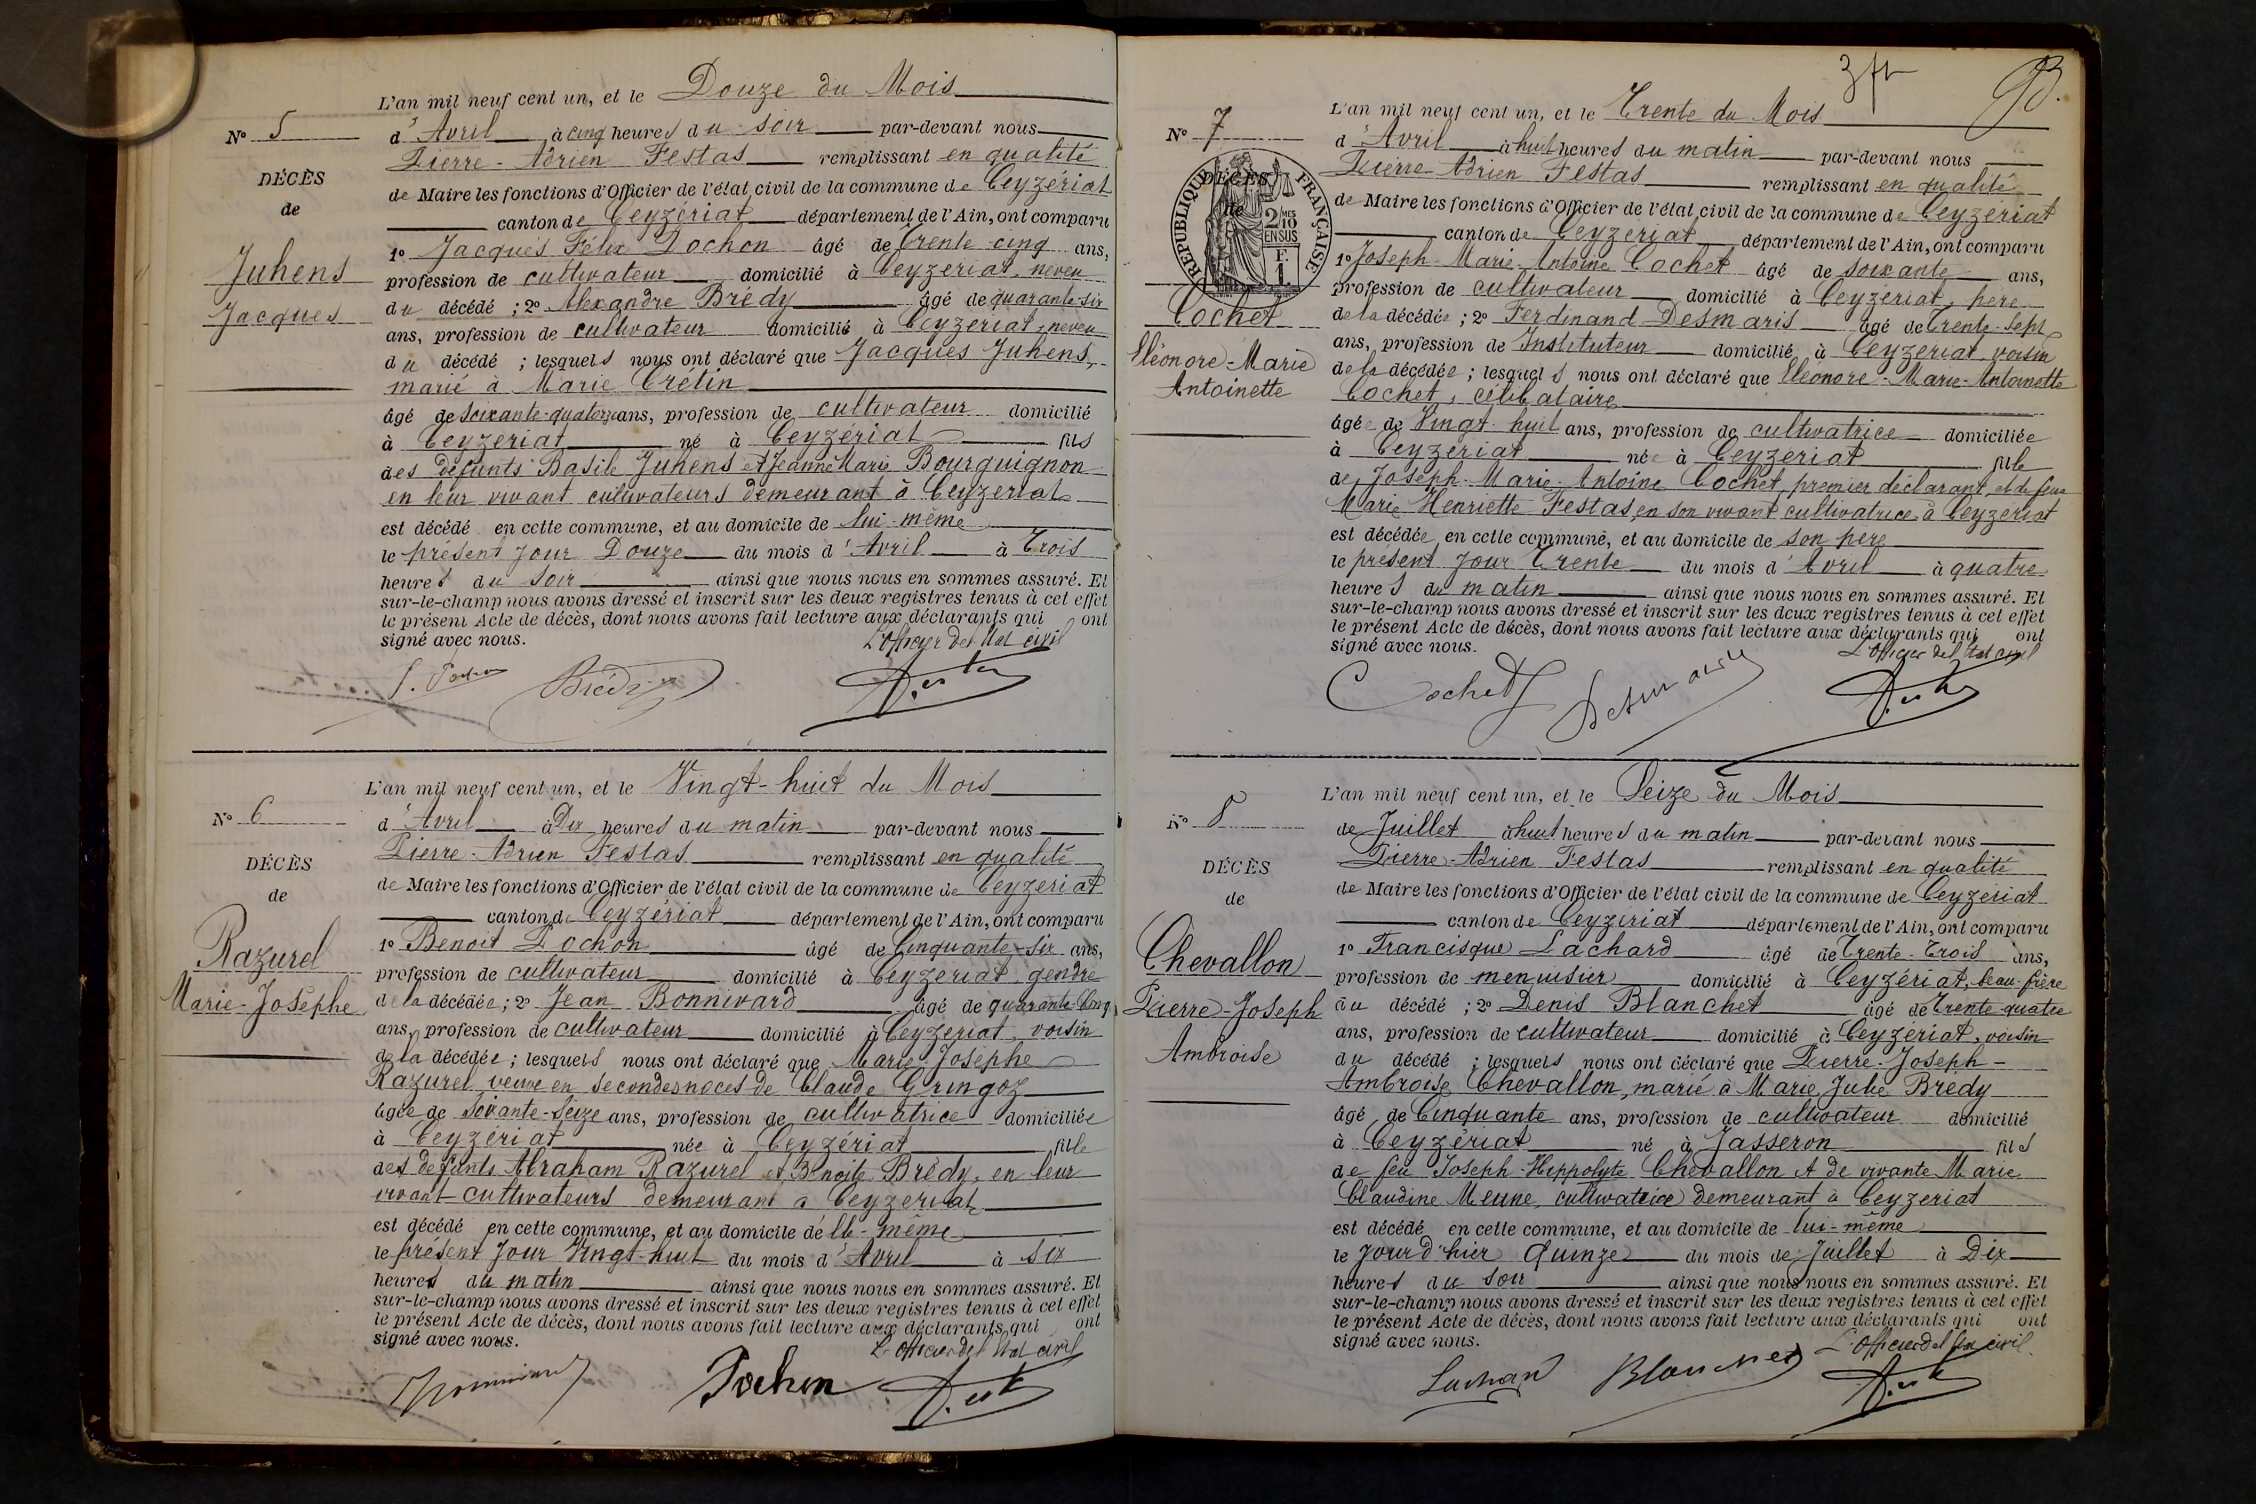 L'an mil neuf cent un, et le Douze du Mois
N° 5
d'Avril à cinq heures du soir par-devant nous
Pierre-Adrien Festas remplissant en qualité
DÉCÈS
de Maire les fonctions d'Officier de l'état civil de la commune de Ceyzériat
de
canton de Ceyzériat département de l'Ain, ont comparu
Juhens
Jacques
1° Jacques Félix Pochon âgé de trente cinq ans,
profession de cultivateur domicilié à Ceyzériat, neveu
du décédé ; 2° Alexandre Brédy âgé de quarante-six
ans, profession de cultivateur domicilié à Ceyzériat, neveu
du décédé ; lesquels nous ont déclaré que Jacques Juhens,
marié à Marie Crétin
âgé de soixante-quatorze ans, profession de cultivateur domicilié
à Ceyzériat né à Ceyzériat fils
des défunts Basile Juhens et Jeanne Marie Bourguignon
en leur vivant cultivateurs demeurant à Ceyzériat
est décédé en cette commune, et au domicile de lui-même
le présent jour Douze du mois d'Avril à Trois
heures du soir ainsi que nous nous en sommes assuré. Et
sur-le-champ nous avons dressé et inscrit sur les deux registres tenus à cet effet
le présent Acte de décès, dont nous avons fait lecture aux déclarants qui ont
signé avec nous.
L'Officier de l'état civil
J. Pochon Brédy
L'an mil neuf cent un, et le Vingt-huit du Mois
N° 6
d'Avril à Dix heures du matin par-devant nous
Pierre-Adrien Festas remplissant en qualité
DÉCÈS
de Maire les fonctions d'Officier de l'état civil de la commune de Ceyzériat
de
canton de Ceyzériat département de l'Ain, ont comparu
Razurel
Marie-Josèphe
1° Benoit Pochon âgé de Cinquante-six ans,
profession de cultivateur domicilié à Ceyzériat, gendre
de la décédée ; 2° Jean Bonnivard âgé de quarante-cinq
ans, profession de cultivateur domicilié à Ceyzériat, voisin
de la décédée ; lesquels nous ont déclaré que Marie Josèphe
Razurel veuve en secondes noces de Claude Gringoz
âgée de Soixante-Seize ans, profession de cultivatrice domiciliée
à Ceyzériat née à Ceyzériat fille
des défunts Abraham Razurel et Benoite Brédy, en leur
vivant cultivateurs demeurant à Ceyzériat
est décédé en cette commune, et au domicile d'elle-même
le présent jour Vingt-huit du mois d'Avril à six
heures du matin ainsi que nous nous en sommes assuré. Et
sur-le-champ nous avons dressé et inscrit sur les deux registres tenus à cet effet
le présent Acte de décès, dont nous avons fait lecture aux déclarants qui ont
signé avec nous.
L'Officier de l'état civil
Pochon
L'an mil neuf cent un, et le Trente du Mois
N° 7
d'Avril à huit heures du matin par-devant nous
Pierre-Adrien Festas remplissant en qualité
DÉCÈS
de
RÉPUBLIQUE FRANÇAISE
2 MES
10
EN SUS
F.
1
de Maire les fonctions d'Officier de l'état civil de la commune de Ceyzériat
canton de Ceyzériat département de l'Ain, ont comparu
Cochet
Eléonore-Marie
Antoinette
1° Joseph-Marie-Antoine Cochet âgé de soixante ans,
profession de cultivateur domicilié à Ceyzériat, père
de la décédée ; 2° Ferdinand Desmaris âgé de Trente-Sept
ans, profession de Instituteur domicilié à Ceyzériat, voisin
de la décédée ; lesquels nous ont déclaré que Eléonore-Marie-Antoinette
Cochet, célibataire
âgée de Vingt-huit ans, profession de cultivatrice domiciliée
à Ceyzériat née à Ceyzériat fille
de Joseph-Marie-Antoine Cochet, premier déclarant, et de feue
Marie Henriette Festas, en son vivant cultivatrice à Ceyzériat
est décédée en cette commune, et au domicile de son père
le présent jour Trente du mois d'Avril à quatre
heures du matin ainsi que nous nous en sommes assuré. Et
sur-le-champ nous avons dressé et inscrit sur les deux registres tenus à cet effet
le présent Acte de décès, dont nous avons fait lecture aux déclarants qui ont
signé avec nous.
L'Officier de l'état civil
Cochet Desmaris
L'an mil neuf cent un, et le Seize du Mois
N° 8
de Juillet à huit heures du matin par-devant nous
Pierre-Adrien Festas remplissant en qualité
DÉCÈS
de Maire les fonctions d'Officier de l'état civil de la commune de Ceyzériat
de
canton de Ceyzériat département de l'Ain, ont comparu
Chevallon
Pierre-Joseph
Ambroise
1° Francisque Lachard âgé de Trente-Trois ans,
profession de menuisier domicilié à Ceyzériat, beau-frère
du décédé ; 2° Denis Blanchet âgé de Trente-quatre
ans, profession de cultivateur domicilié à Ceyzériat, voisin
du décédé ; lesquels nous ont déclaré que Pierre-Joseph-
Ambroise Chevallon, marié à Marie Julie Brédy
âgé de Cinquante ans, profession de cultivateur domicilié
à Ceyzériat né à Jasseron fils
de feu Joseph-Hippolyte Chevallon et de vivante Marie
Claudine Meune, cultivatrice demeurant à Ceyzériat
est décédé en cette commune, et au domicile de lui-même
le jour d'hier Quinze du mois de Juillet à Dix
heures du soir ainsi que nous nous en sommes assuré. Et
sur-le-champ nous avons dressé et inscrit sur les deux registres tenus à cet effet
le présent Acte de décès, dont nous avons fait lecture aux déclarants qui ont
signé avec nous.
L'Officier de l'état civil.
Lachard Blanchet